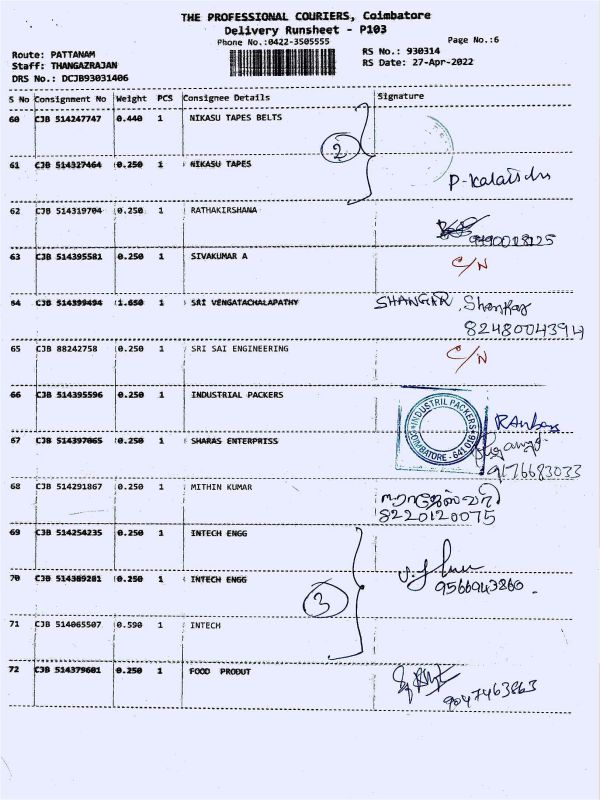 THE PROFESSIONAL COURIERS, Coimbatore
Delivery Runsheet - P103
Phone No.:0422-3505555
Page No.:6
Route: PATTANAM
RS No.: 930314
Staff: THANGAZRAJAN
RS Date: 27-Apr-2022
DRS No.: DCJB93031406
S No Consignment No Weight PCS Consignee Details Signature
60 CJB 514247747 0.440 1 NIKASU TAPES BELTS
2
61 CJB 514327464 0.250 1 NIKASU TAPES
62 CJB 514319704 0.250 1 RATHAKIRSHANA
63 CJB 514395581 0.250 1 SIVAKUMAR A C/N
64 CJB 514399494 1.650 1 SRI VENGATACHALAPATHY SHANGAR
8248004394
65 CJB 88242758 0.250 1 SRI SAI ENGINEERING C/N
66 CJB 514395596 0.250 1 INDUSTRIAL PACKERS
INDUSTRIL PACKERS
COIMBATORE - 641 016
67 CJB 514397065 0.250 1 SHARAS ENTERPRISS
9176683033
68 CJB 514291867 0.250 1 MITHIN KUMAR
8220120075
69 CJB 514254235 0.250 1 INTECH ENGG
70 CJB 514389281 0.250 1 INTECH ENGG
9566943860
3
71 CJB 514065507 0.590 1 INTECH
72 CJB 514379601 0.250 1 FOOD PRODUT
9047463863